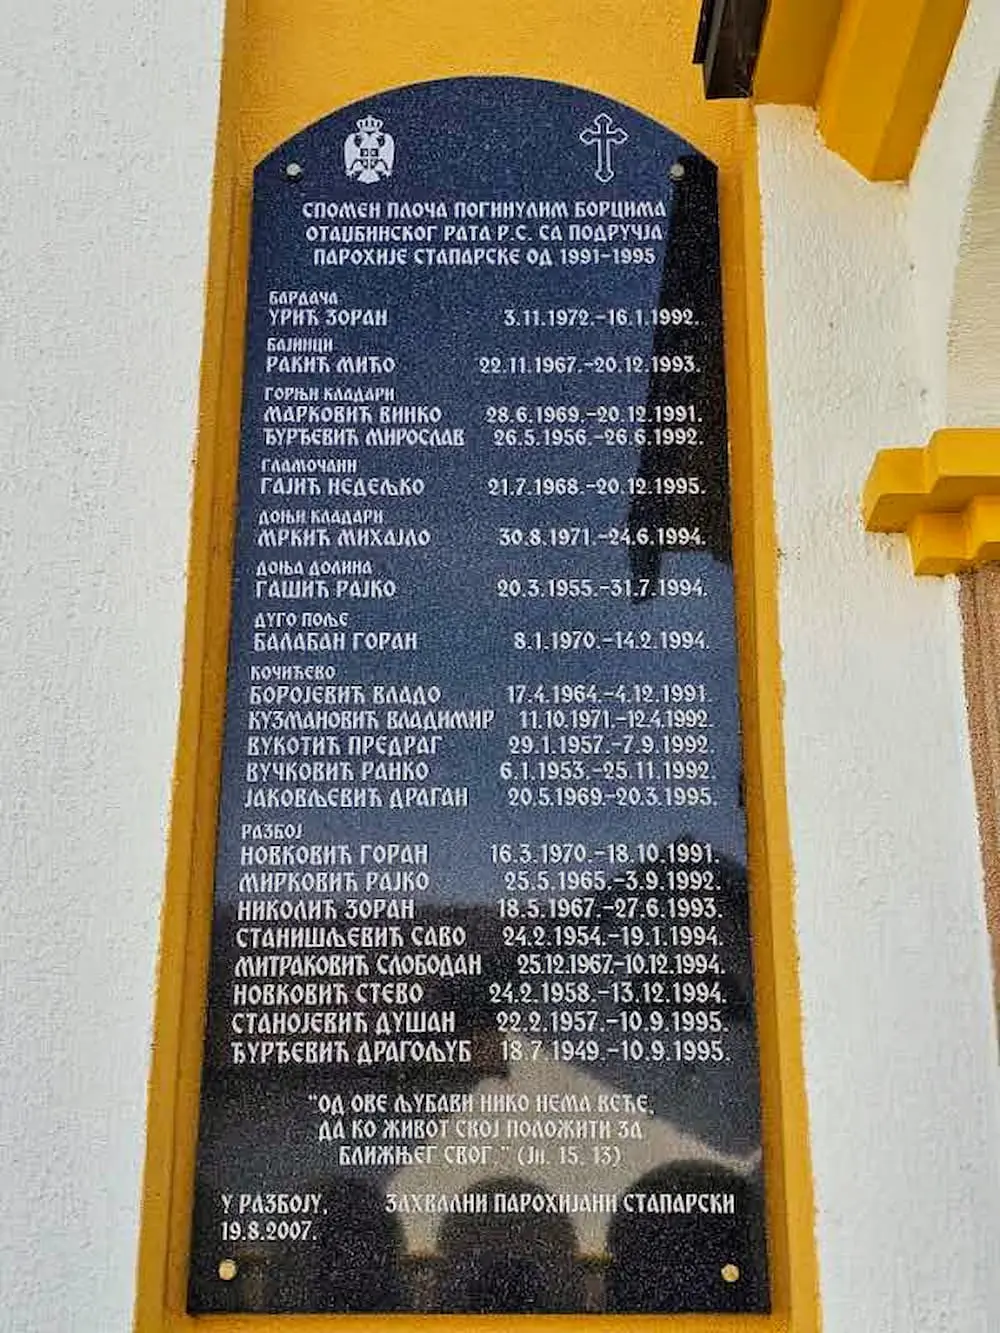 СПОМЕН ПЛОЧА ПОГИНУЛИМ БОРЦИМА
ОТАЏБИНСКОГ РАТА Р.С. СА ПОДРУЧЈА
ПАРОХИЈЕ СТАПАРСКЕ ОД 1991-1995
БАРДАЧА
УРИЋ ЗОРАН 3.11.1972.-16.1.1992.
БАЈИНЦИ
РАКИЋ МИЋО 22.11.1967.-20.12.1993.
ГОРЊИ КЛАДАРИ
МАРКОВИЋ ВИНКО 28.6.1969.-20.12.1991.
ЂУРЂЕВИЋ МИРОСЛАВ 26.5.1956.-26.6.1992.
ГЛАМОЧАНИ
ГАЈИЋ НЕДЕЉКО 21.7.1968.-20.12.1995.
ДОЊИ КЛАДАРИ
МРКИЋ МИХАЈЛО 30.8.1971.-24.6.1994.
ДОЊА ДОЛИНА
ГАШИЋ РАЈКО 20.3.1955.-31.7.1994.
ДУГО ПОЉЕ
БАЛАБАН ГОРАН 8.1.1970.-14.2.1994.
КОЧИЋЕВО
БОРОЈЕВИЋ ВЛАДО 17.4.1964.-4.12.1991
КУЗМАНОВИЋ ВЛАДИМИР 11.10.1971.-12.4.1992.
ВУКОТИЋ ПРЕДРАГ 29.1.1957.-7.9.1992.
ВУЧКОВИЋ РАНКО 6.1.1953.-25.11.1992.
ЈАКОВЉЕВИЋ ДРАГАН 20.5.1969.-20.3.1995.
РАЗБОЈ
НОВКОВИЋ ГОРАН 16.3.1970.-18.10.1991.
МИРКОВИЋ РАЈКО 25.5.1965.-3.9.1992.
НИКОЛИЋ ЗОРАН 18.5.1967.-27.6.1993.
СТАНИШЉЕВИЋ САВО 24.2.1954.-19.1.1994.
МИТРАКОВИЋ СЛОБОДАН 25.12.1967.-10.12.1994.
НОВКОВИЋ СТЕВО 24.2.1958.-13.12.1994.
СТАНОЈЕВИЋ ДУШАН 22.2.1957.-10.9.1995.
ЂУРЂЕВИЋ ДРАГОЉУБ 18.7.1949.-10.9.1995.
"ОД ОВЕ ЉУБАВИ НИКО НЕМА ВЕЋЕ,
ДА КО ЖИВОТ СВОЈ ПОЛОЖИТИ ЗА
БЛИЖЊЕГ СВОГ." (Јн. 15, 13)
У РАЗБОЈУ, ЗАХВАЛНИ ПАРОХИЈАНИ СТАПАРСКИ
19.8.2007.